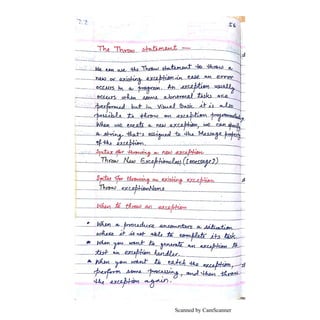 7.2
56
The Throw statement
We can use the Throw statement to throw a
new or existing exception in case an error
occurs in a program. An exception usually
occurs when some abnormal tasks are
performed but in Visual Basic it is also
possible to throw an exception programmatically.
When we create a new exception, we can specify
a string that's assigned to the Message property
of the exception.
Syntax for throwing a new exception
Throw New Exceptionclass ([message])
Syntax for throwing an existing exception
Throw exceptionName
When to throw an exception
• When a procedure encounters a situation
where it is not able to complete its task.
• When you want to generate an exception to
test an exception handler.
• When you want to catch the exception,
perform some processing, and then throw
the exception again.
Scanned by CamScanner